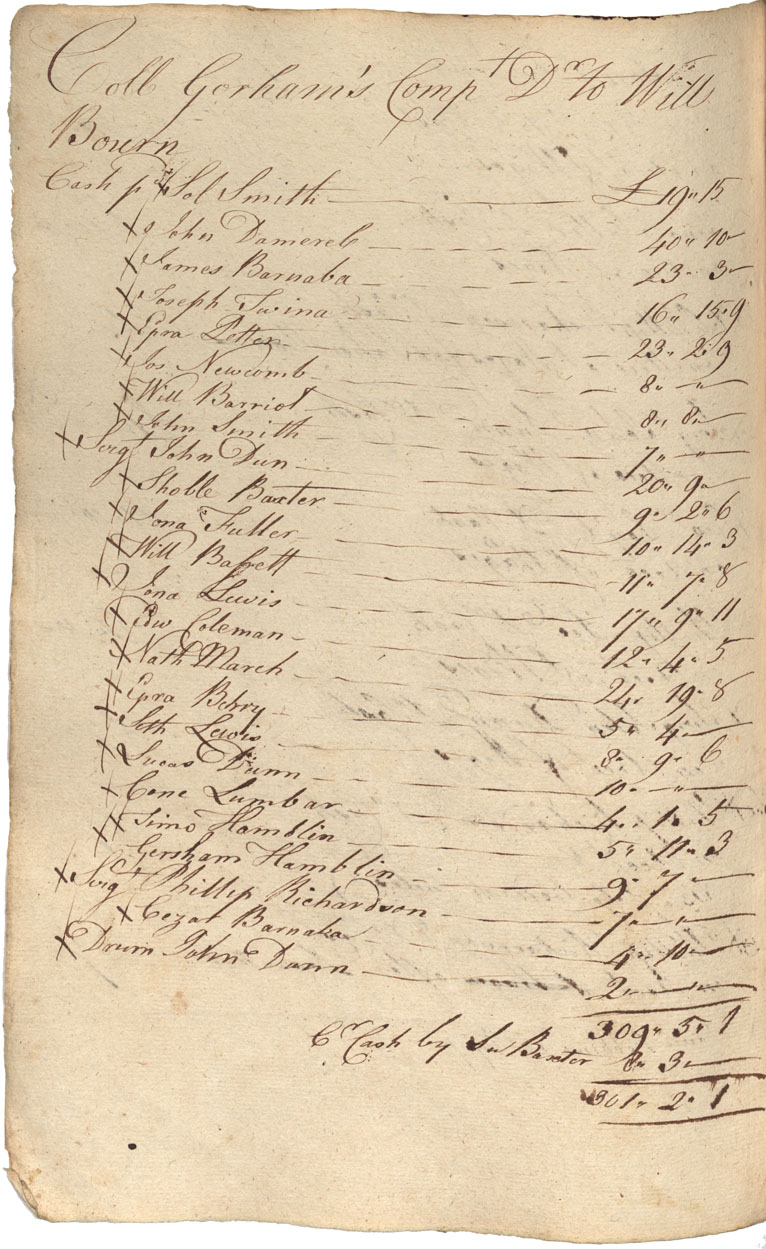 Coll Gorham's Comp.t Dr to Will
Bourn
Cash p.d x Sol Smith £ 19" 15
x John Damerell 40" 10"
x James Barnaba 23" 3"
x Joseph Twina 16" 15" 9
x Epra Potter 23" 2" 9
x Jos. Newcomb 8" "
x Will Barriot 8" 8"
x John Smith 7" "
x Serg.t John Dun 20" 9"
x Shoble Baxter 9" 2" 6
x Jona Fuller 10" 14" 3
x Will Bassett 11" 7" 8
x Jona Lewis 17" 9" 11
x Edw Coleman 12" 4" 5
x Nath March 24" 19" 8
x Epra Berry 5" 4"
x Seth Lewis 8" 9" 6
x Lucas Dunn 10" "
x Cone Lumbar 4" 1" 5
x Simo Hamblin 5" 11" 3
x Gersham Hamblin 9" 7"
x Serg.t Phillip Richardson 7" "
x Cezar Barnaba 4" 10"
x Drum John Dann 2" "
309" 5" 1
Cr Cash by Baxter 8" 3"
301" 2" 1